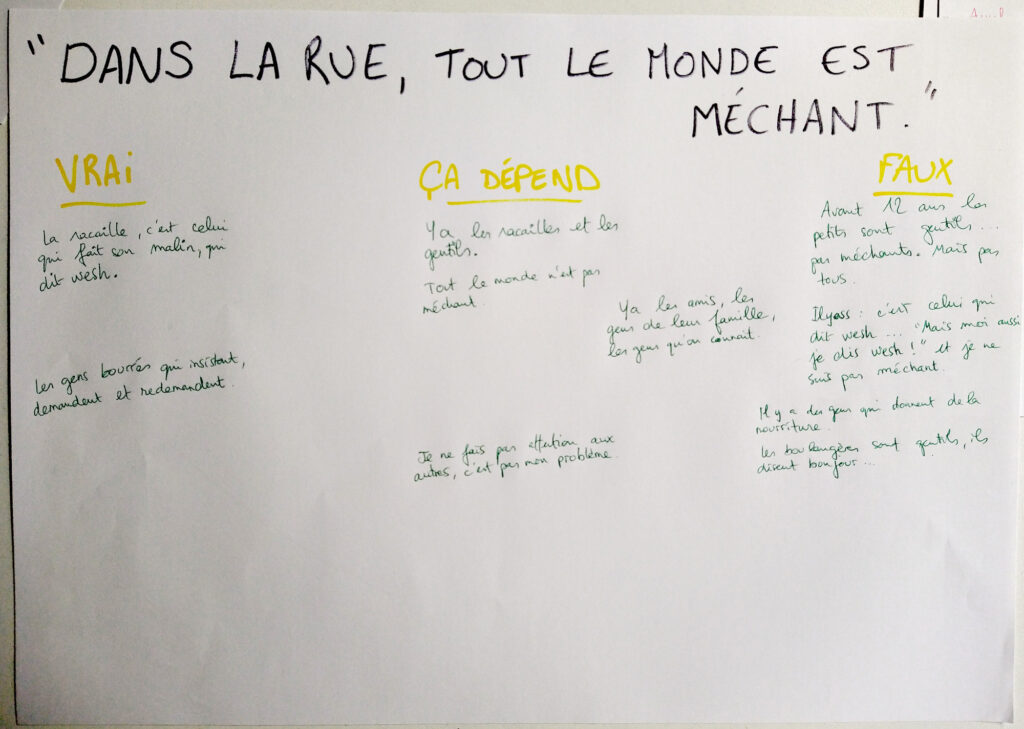 "DANS LA RUE, TOUT LE MONDE EST
MÉCHANT."
VRAi
La racaille, c'est celui
qui fait son malin, qui
dit wesh.
Les gens bourrés qui insistent,
demandent et redemandent.
ÇA DÉPEND
Ya les racailles et les
gentils.
Tout le monde n'est pas
méchant.
Ya les amis, les
gens de leur famille,
les gens qu'on connait.
Je ne fais pas attention aux
autres, c'est pas mon problème.
FAUX
Avant 12 ans les
petits sont gentils...
pas méchants. Mais pas
tous.
Ilyass : c'est celui qui
dit wesh... "Mais moi aussi
je dis wesh !" et je ne
suis pas méchant.
Il y a des gens qui donnent de la
nourriture.
Les boulangères sont gentils, ils
disent bonjour...